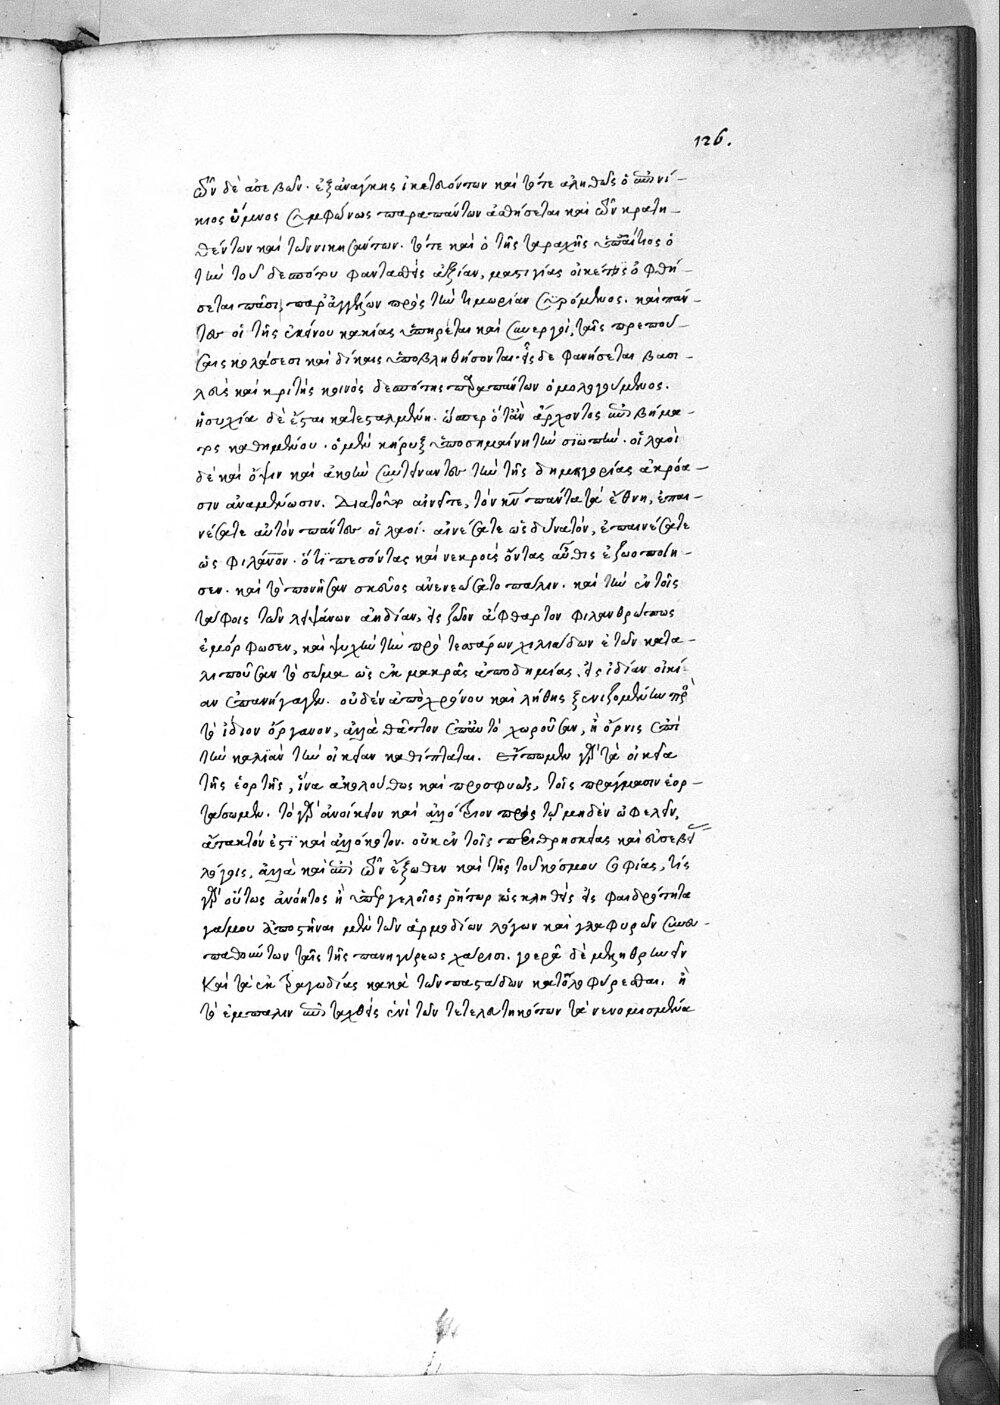 126.
τῶν δὲ ἀσεβῶν· ἐξανάγκης ἱκετευόντων καὶ τότε ἀληθῶς ὁ ἐπινί-
κιος ὕμνος συμφώνως παραπάντων ἀσθήσεται καὶ τῶν κρατη-
θέντων καὶ τῶν νικησάντων. τότε καὶ ὁ τῆς ταραχῆς ὑπαίτιος ὁ
τὴν τοῦ δεσπότου φαντασθεὶς ἀξίαν, μαστιγίας οἰκέτης ὀφθή-
σεται πᾶσι, παρ' ἀγγέλων πρὸς τὴν τιμωρίαν συρόμενος. καὶ πάν-
τες οἱ τῆς ἐκείνου κακίας ὑπηρέται καὶ συνεργοί, ταῖς πρεπού-
σαις κολάσεσι καὶ δίκαις ὑποβληθήσονται· εἷς δὲ φανήσεται βασι-
λεὺς καὶ κριτὴς κοινὸς δεσπότης παραπάντων ὁμολογούμενος.
ἡσυχία δὲ ἔσται κατεσταλμένη. ὥσπερ ὅταν ἄρχοντος ἐπὶ βήμα-
τος καθημένου· ὁ μὲν κήρυξ ὑποσημαίνη τὴν σιωπήν· οἱ λαοὶ
δὲ καὶ ὄψιν καὶ ἀκοὴν συντείναντες τὴν τῆς δημηγορίας ἀκρόα-
σιν ἀναμένωσιν. Διατοῦτο αἰνεῖτε, τὸν κύριον πάντα τὰ ἔθνη, ἐπαι-
νέσατε αὐτὸν πάντες οἱ λαοί. αἰνέσατε ὡς δυνατόν, ἐπαινέσατε
ὡς φιλάνον. ὅτι πεσόντας καὶ νεκροὺς ὄντας αὖθις ἐζωοποίη-
σεν. καὶ τὸ πονῆσαν σκεῦος ἀνενεώσατο πάλιν. καὶ τὴν ἐν τοῖς
τάφοις τῶν λειψάνων ἀηδίαν, εἰς ζῶον ἄφθαρτον φιλανθρώπως
ἐμόρφωσεν, καὶ ψυχὴν τὴν πρὸ τεσσάρων χιλιάδων ἐτῶν κατα-
λιποῦσαν τὸ σῶμα ὡς ἐκ μακρᾶς ἀποδημίας, εἰς ἰδίαν οἰκί-
αν ἐπανήγαγεν. οὐδὲν ἀπὸ χρόνου καὶ λήθης ξενιζομένων πρὸς
τὸ ἴδιον ὄργανον, ἀλλὰ θᾶττον ἐπ' αὐτὸ χωροῦσαν, ἢ ὄρνις ἐπὶ
τὴν καλιὰν τὴν οἰκείαν καθίπταται. Εἴπωμεν γὰρ τὰ οἰκεῖα
τῆς ἑορτῆς, ἵνα ἀκολούθως καὶ προσφυῶς, τοῖς πράγμασιν ἑορ-
τάσωμεν. τὸ γὰρ ἀνοίκειον καὶ ἀλλότριον πρὸς τῷ μηδὲν ὠφελεῖν,
ἄτακτόν ἐστι καὶ ἀλλόκοτον. οὐκ ἐν τοῖς περὶ θρησκείας καὶ εὐσεβείας
λόγοις, ἀλλὰ καὶ ἐπὶ τῶν ἔξωθεν καὶ τῆς τοῦ κόσμου σοφίας, τίς
γὰρ οὕτως ἀνόητος ἢ ὑπεργελοῖος ῥήτωρ ὡς κληθεὶς εἰς φαιδρότητα
γάμου ἀποστῆναι μὲν τῶν ἁρμοδίων λόγων καὶ γλαφυρῶν συνευ-
παθούντων ταῖς τῆς πανηγύρεως χάρισι. γοερὰ δὲ μέλη θρηνεῖν
Καὶ τὰ ἐκ τραγωδίας κακὰ τῶν παστάδων κατολοφύρεσθαι, ἢ
τὸ ἔμπαλιν ἐπιταχθεὶς ἐνὶ τῶν τετελευτηκότων τὰ νενομισμένα